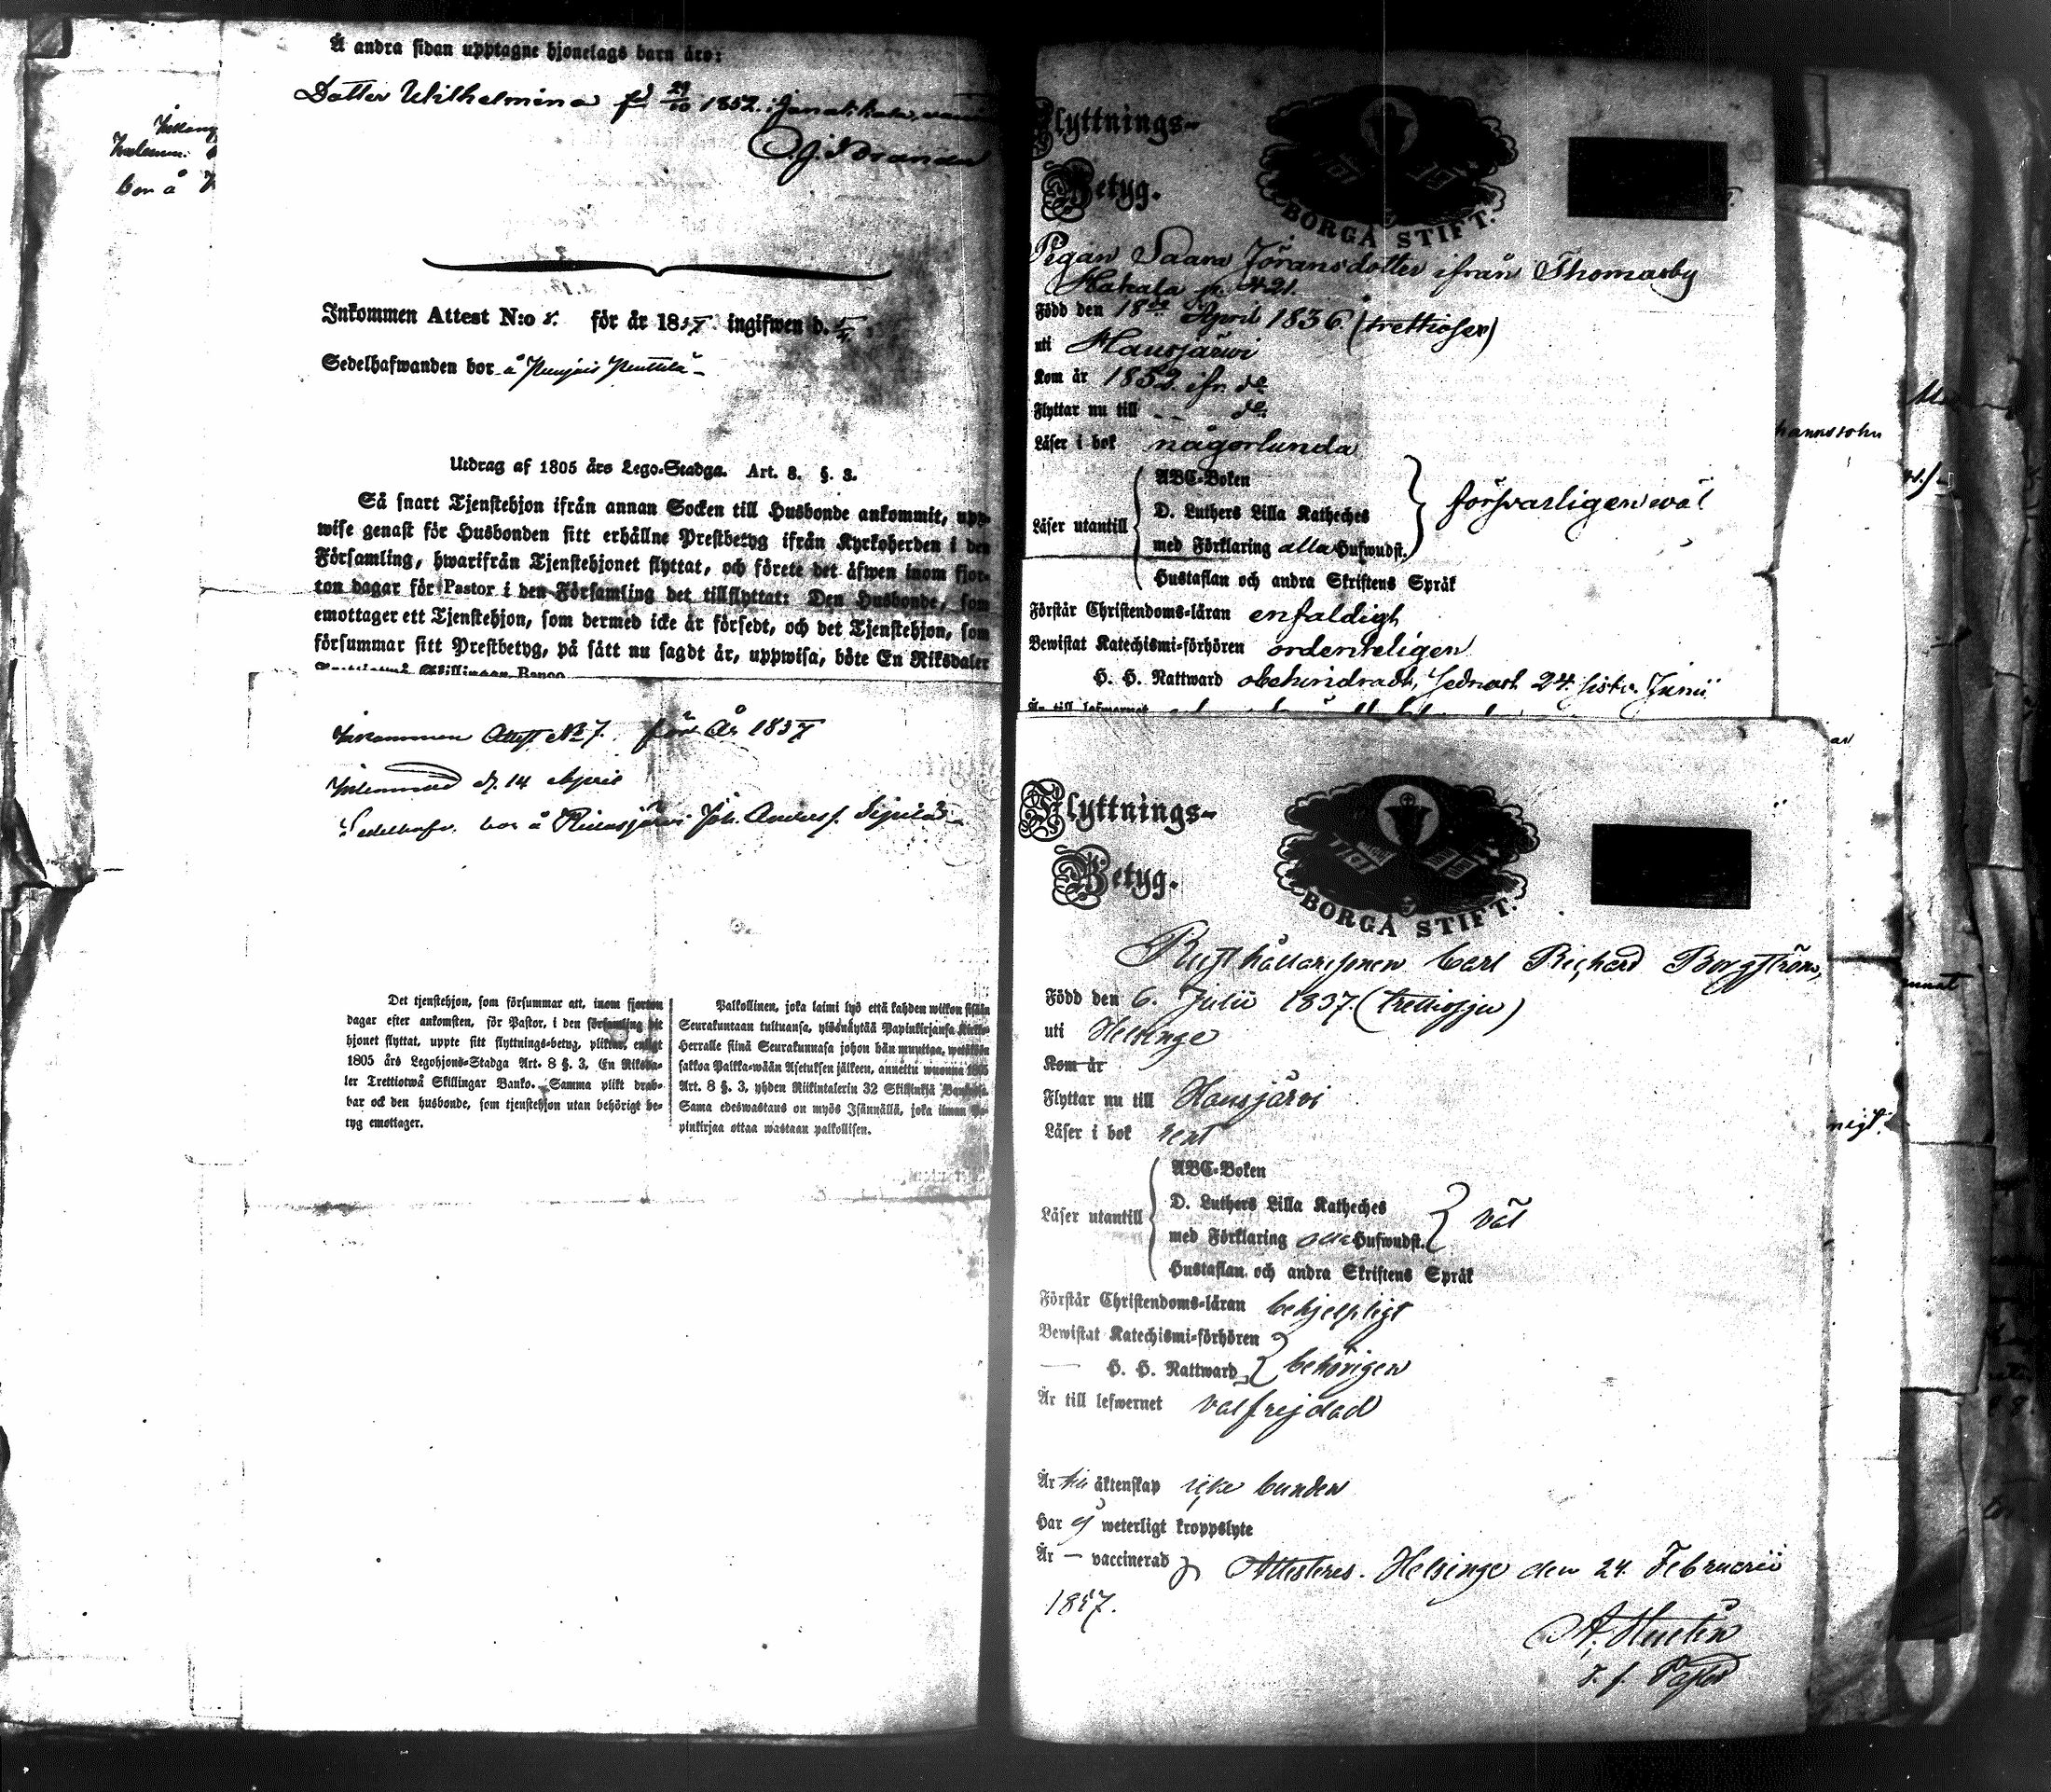 Å andra sidan upptagne hjonelags barn äro:
Dotter Wilhelmina fd 29/10 1852.
Inkommen Attest N:o 8. för år 1857 ingifwen d.
Sedelhafwanden bor å
Utdrag af 1805 års Lego-Stadga. Art. 8. §. 3.
Så snart Tjenstehjon ifrån annan Socken till Husbonde ankommit, upp-
wise genast för Husbonden sitt erhållne Prestbetyg ifrån Kyrkoherden i den
Församling, hwarifrån Tjenstehjonet flyttat, och förete det äfwen inom fjor-
ton dagar för Pastor i den Församling det tillflyttat: Den Husbonde, som
emottager ett Tjenstehjon, som dermed icke är försedt, och det Tjenstehjon, som
försummar sitt Prestbetyg, på sätt nu sagdt är, uppwisa, böte En Riksdaler
Skillingar Banco.
Inkommen Attest No 7. för År 1857
Inlemnad d. 14 April
Sedelhafv. bor å Joh. Anders.
Det tjenstehjon, som försummar att, inom fjorton
dagar efter ankomsten, för Pastor, i den församling dit
hjonet flyttat, uppte sitt flyttnings-betyg, pliktar, enligt
1805 års Legohjons-Stadga Art. 8 §. 3, En Riksda-
ler Trettiotwå Skillingar Banko. Samma plikt drab-
bar ock den husbonde, som tjenstehjon utan behörigt be-
tyg emottager.
Palkollinen, joka laimi lyö että kahden wiikon sisään
Seurakuntaan tultuansa, ylösnäytää Papinkirjansa Kirkko-
Herralle siinä Seurakunnasa johon hän muuttaa, wetäköön
sakkoa Palkka-wään Asetuksen jälkeen, annettu wuonna 1805
Art. 8 §. 3, yhden Riikintalerin 32 Skillinkiä Bankosa.
Sama edeswastaus on myös Isännällä, joka ilman Pa-
pinkirjaa ottaa wastaan palkollisen.
Flyttnings-
Betyg.
BORGÅ STIFT.
Pigan Saara Jöransdotter ifrån Thomasby
Hakala p. 421.
Född den 18de April 1836. (trettiosex)
uti Hausjärwi
Kom år 1853. ifr. do
Flyttar nu till - - do.
Läser i bok någorlunda
Läser utantill
ABC-Boken
D. Luthers Lilla Katheches
med Förklaring alla Hufwudst.
försvarligen wäl
Hustaflan och andra Skriftens Språk
Förstår Christendoms-läran enfaldigt
Bewistat Katechismi-förhören ordenteligen
H. H. Nattward obehindradt, sednast 24. sistl. Junii
Är till lefwernet
Flyttnings-
Betyg.
BORGÅ STIFT.
Rusthållaresonen Carl Richard Borgström,
Född den 6. Julii 1837. (trettiosju)
uti Helsinge
Kom år
Flyttar nu till Hausjärvi
Läser i bok rent
Läser utantill
ABC-Boken
D. Luthers Lilla Katheches
med Förklaring alla Hufwudst.
väl
Hustaflan och andra Skriftens Språk
Förstår Christendoms-läran behjelpligt
Bewistat Katechismi-förhören
H. H. Nattward
behörigen
Är till lefwernet välfrejdad
Är till äktenskap icke bunden
Har ej weterligt kroppslyte
Är — vaccinerad Attesteras. Helsinge den 24. Februarii
1857.